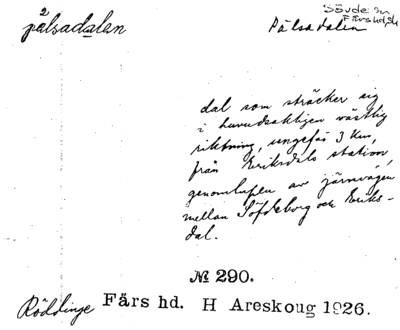 Sövde sn
Färs hd, Sk
2
pålsadalen
Pålsadalen
dal som sträcker sig
i huvudsakligen västlig
riktning, ungefär 3 km,
från Eriksdals station,
genomlupen av järnvägen
mellan Söfdeborg och Eriks-
dal.
№ 290.
Röddinge Färs hd. H Areskoug 1926.